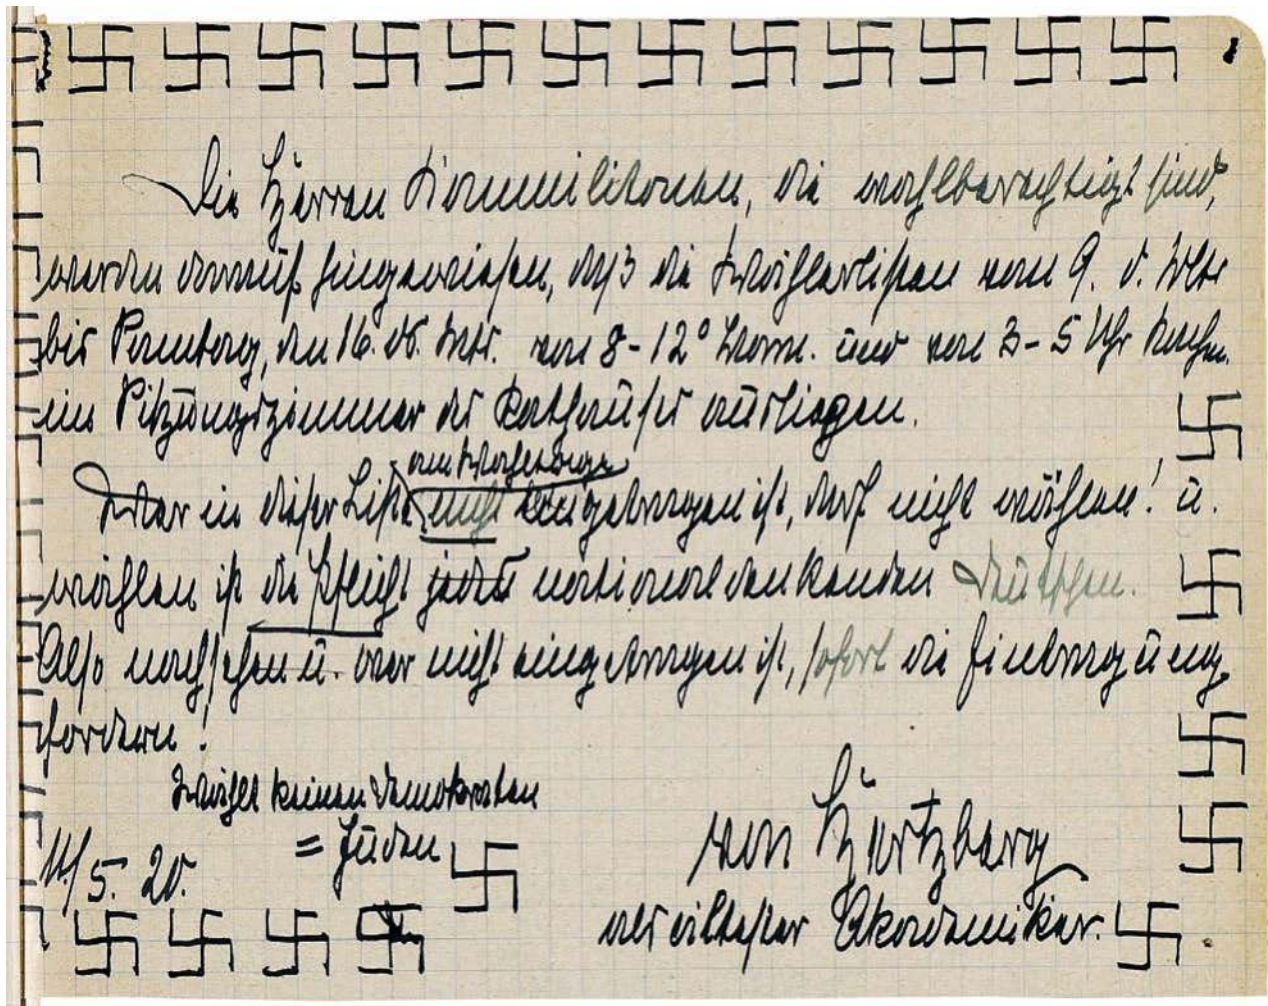 Die Herren Kommilitonen, die wahlberechtigt sind,
werden darauf hingewiesen, daß die Wählerlisten vom 9. d. Mts
bis Sonntag, den 16. ds. Mts. von 8-12° Vorm. und von 3-5 Uhr Nachm.
im Sitzungszimmer des Rathauses ausliegen.
am Wahltage
Wer in dieser Liste nicht eingetragen ist, darf nicht wählen! u.
wählen ist die Pflicht jedes nationaldenkenden Deutschen.
Also nachsehen u. wer nicht eingetragen ist, sofort die Eintragung
fordern!
Wählt keinen Demokraten
= Juden
11/5. 20.
von Hertzberg
als ältester Akademiker.